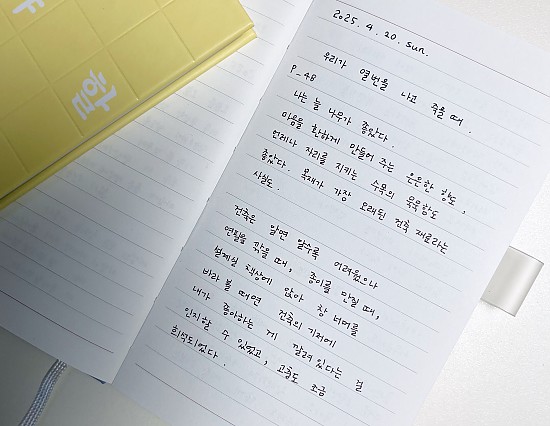 2025. 4. 20. sun.
우리가 열번을 나고 죽을 때.
P_48
나는 늘 나무가 좋았다.
마음을 환하게 만들어 주는 은은한 향도,
언제나 자리를 지키는 수목의 묵묵함도
좋았다. 목재가 가장 오래된 건축 재료라는
사실도.
건축은 알면 알수록 어려웠으나
연필을 깎을 때, 종이를 만질 때,
설계실 책상에 앉아 창 너머를
바라 볼 때면 건축의 기저에
내가 좋아하는 게 깔려 있다는 걸
인지할 수 있었고, 고충도 조금
희석되었다.